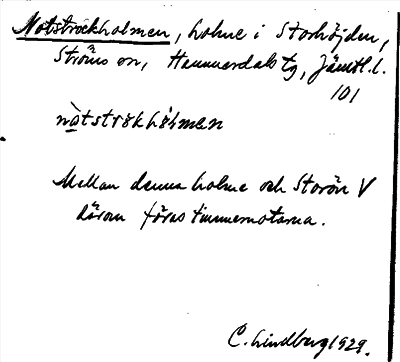 Notströckholmen, holme i Storhöjden,
Ströms sn, Hammerdals tg, Jämtl. l.
101
nòtströkhòlmen
Mellan denna holme och Storön V
därom föras timmernotarna.
C. Lindberg 1929.